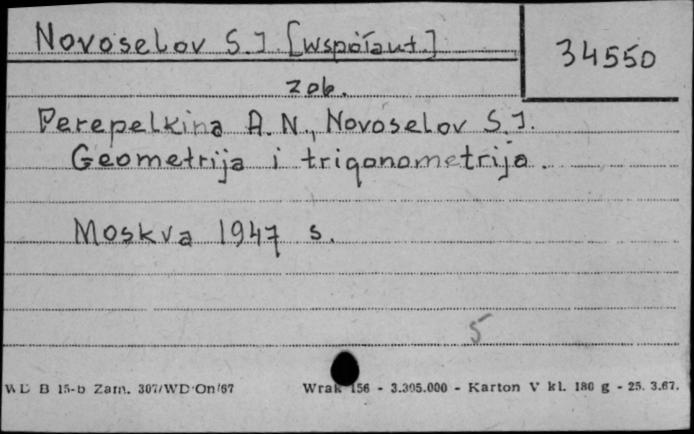 Novoselov S. I. [współaut.]
34550
zob.
Perepelkina A. N., Novoselov S. I.
Geometrija i trigonometrija.
Moskva 1947 s.
5
WD B 15-b Zam. 307/WD-On/67 Wrak 156 - 3.395.000 - Karton V kl. 180 g - 25. 3.67.